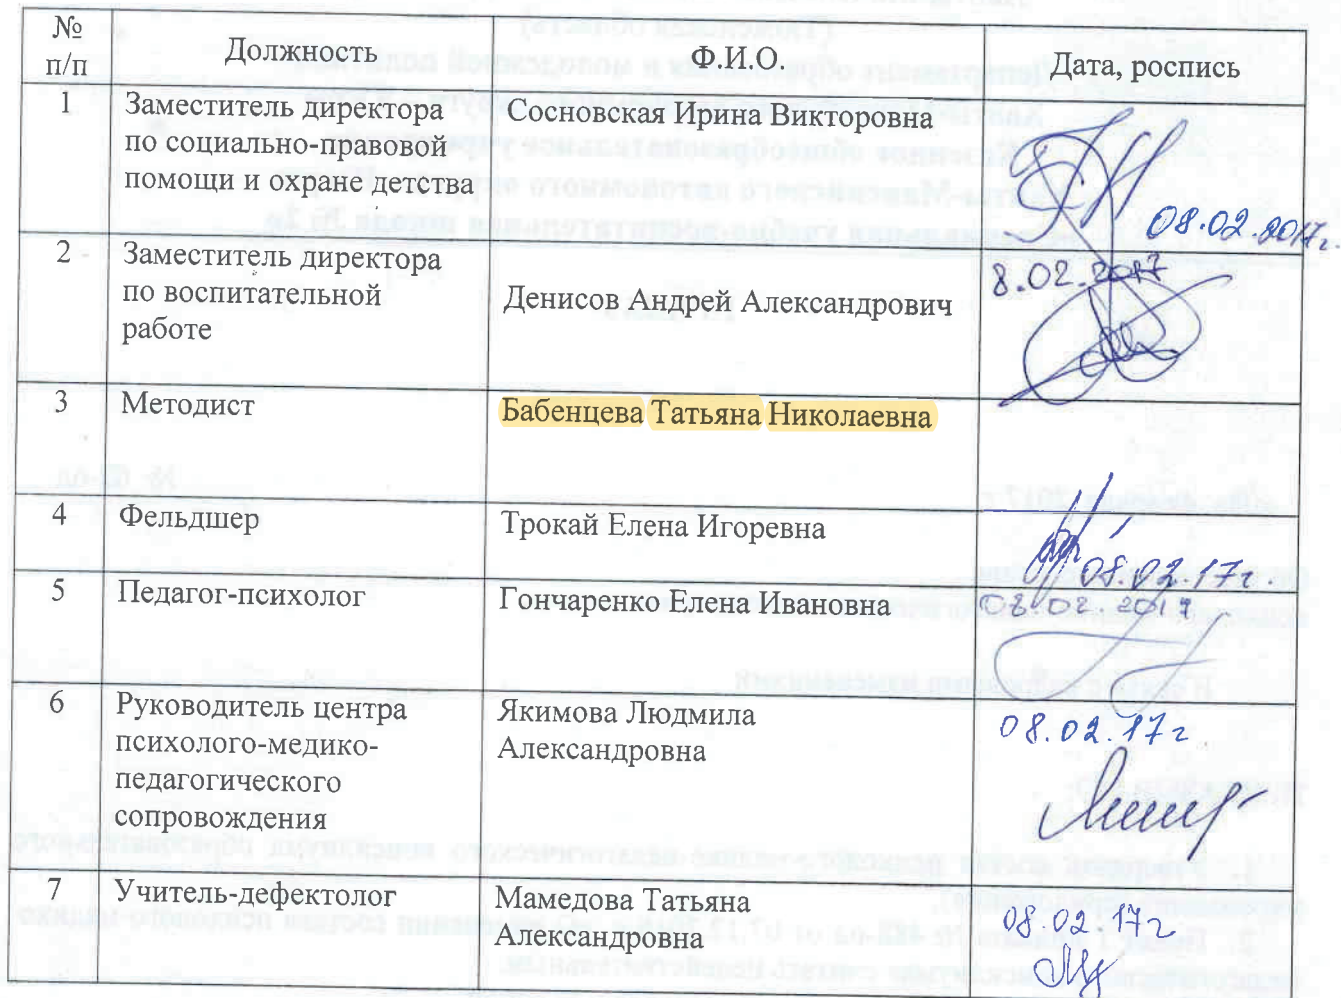 № п/п Должность Ф.И.О. Дата, роспись
1 Заместитель директора по социально-правовой помощи и охране детства Сосновская Ирина Викторовна 08.02.2017г.
2 Заместитель директора по воспитательной работе Денисов Андрей Александрович 8.02.2017
3 Методист Бабенцева Татьяна Николаевна
4 Фельдшер Трокай Елена Игоревна 08.02.17г
5 Педагог-психолог Гончаренко Елена Ивановна 08.02.2017
6 Руководитель центра психолого-медико-педагогического сопровождения Якимова Людмила Александровна 08.02.17г
7 Учитель-дефектолог Мамедова Татьяна Александровна 08.02.17г